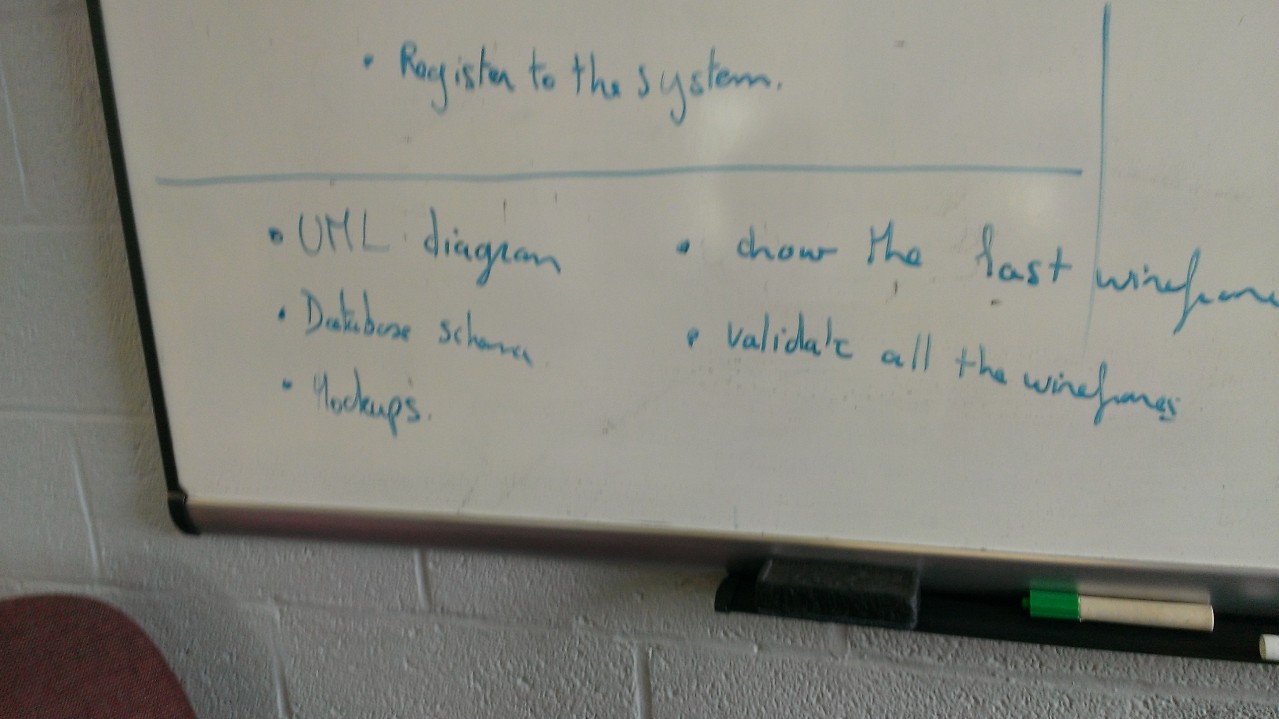 • Register to the system.
• UML diagram
• Database schema
• Mockups.
• show the last wireframe
• validate all the wireframes